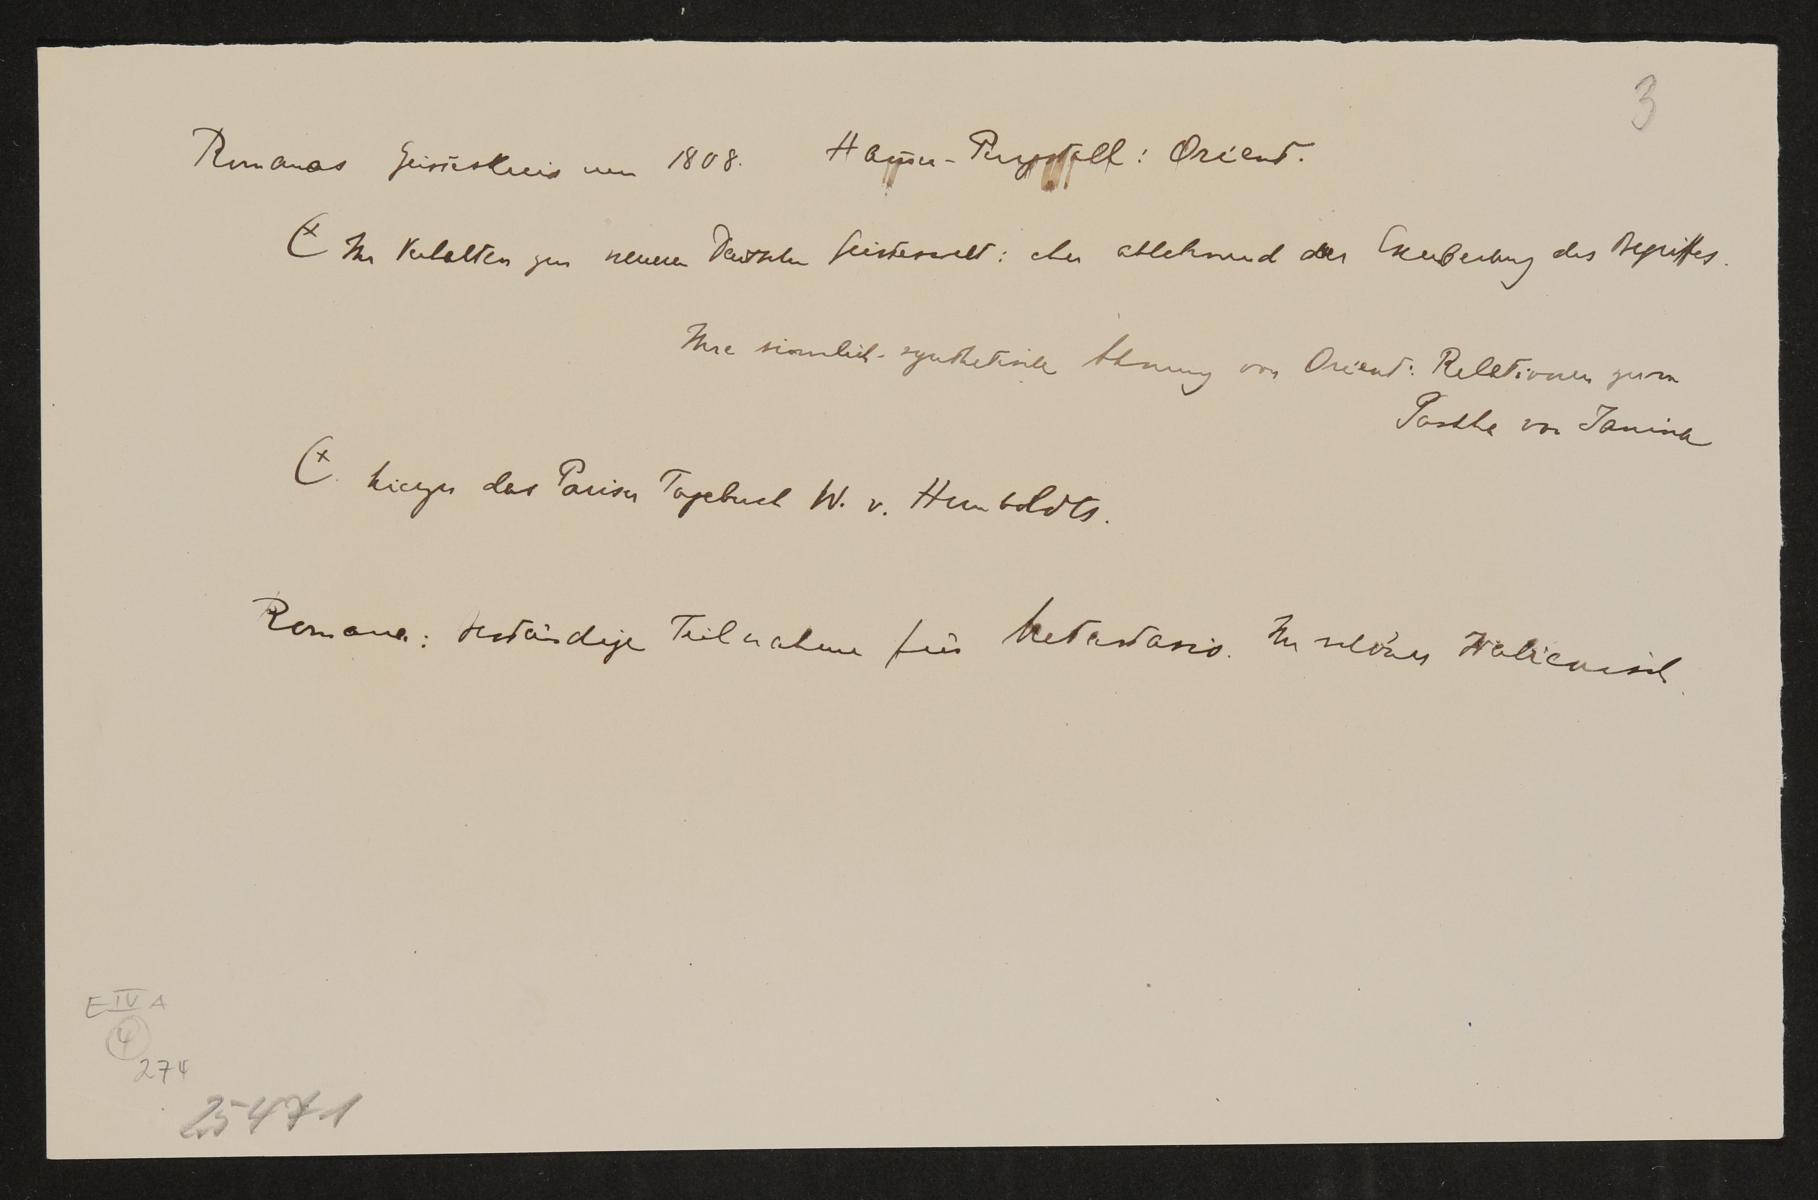 3
Romanas Geisteskreis um 1808. Hammer-Purgstall: Orient.
(x Ihr Verhalten zur neueren Deutschen Geisteswelt: eher ablehnend der Exuberanz des Begriffes.
Ihre sinnlich-synthetische Ahnung von Orient: Relationen zum
Pascha von Janina
(x hiezu das Pariser Tagebuch W. v. Humboldts.
Romana: beständige Teilnahme für Metastasio. Ihr schönes Italienisch.
E IV A
4
274
25471